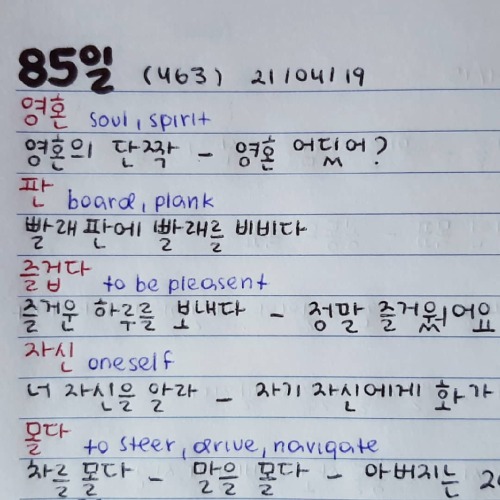 85일 (463) 21/04/19
영혼 soul, spirit
영혼의 단짝 - 영혼 어딨어?
판 board, plank
빨래판에 빨래를 비비다
즐겁다 to be pleasent
즐거운 하루를 보내다 - 정말 즐거웠어요
자신 oneself
너 자신을 알라 - 자기 자신에게 화가
몰다 to steer, drive, navigate
차를 몰다 - 말을 몰다 - 아버지는